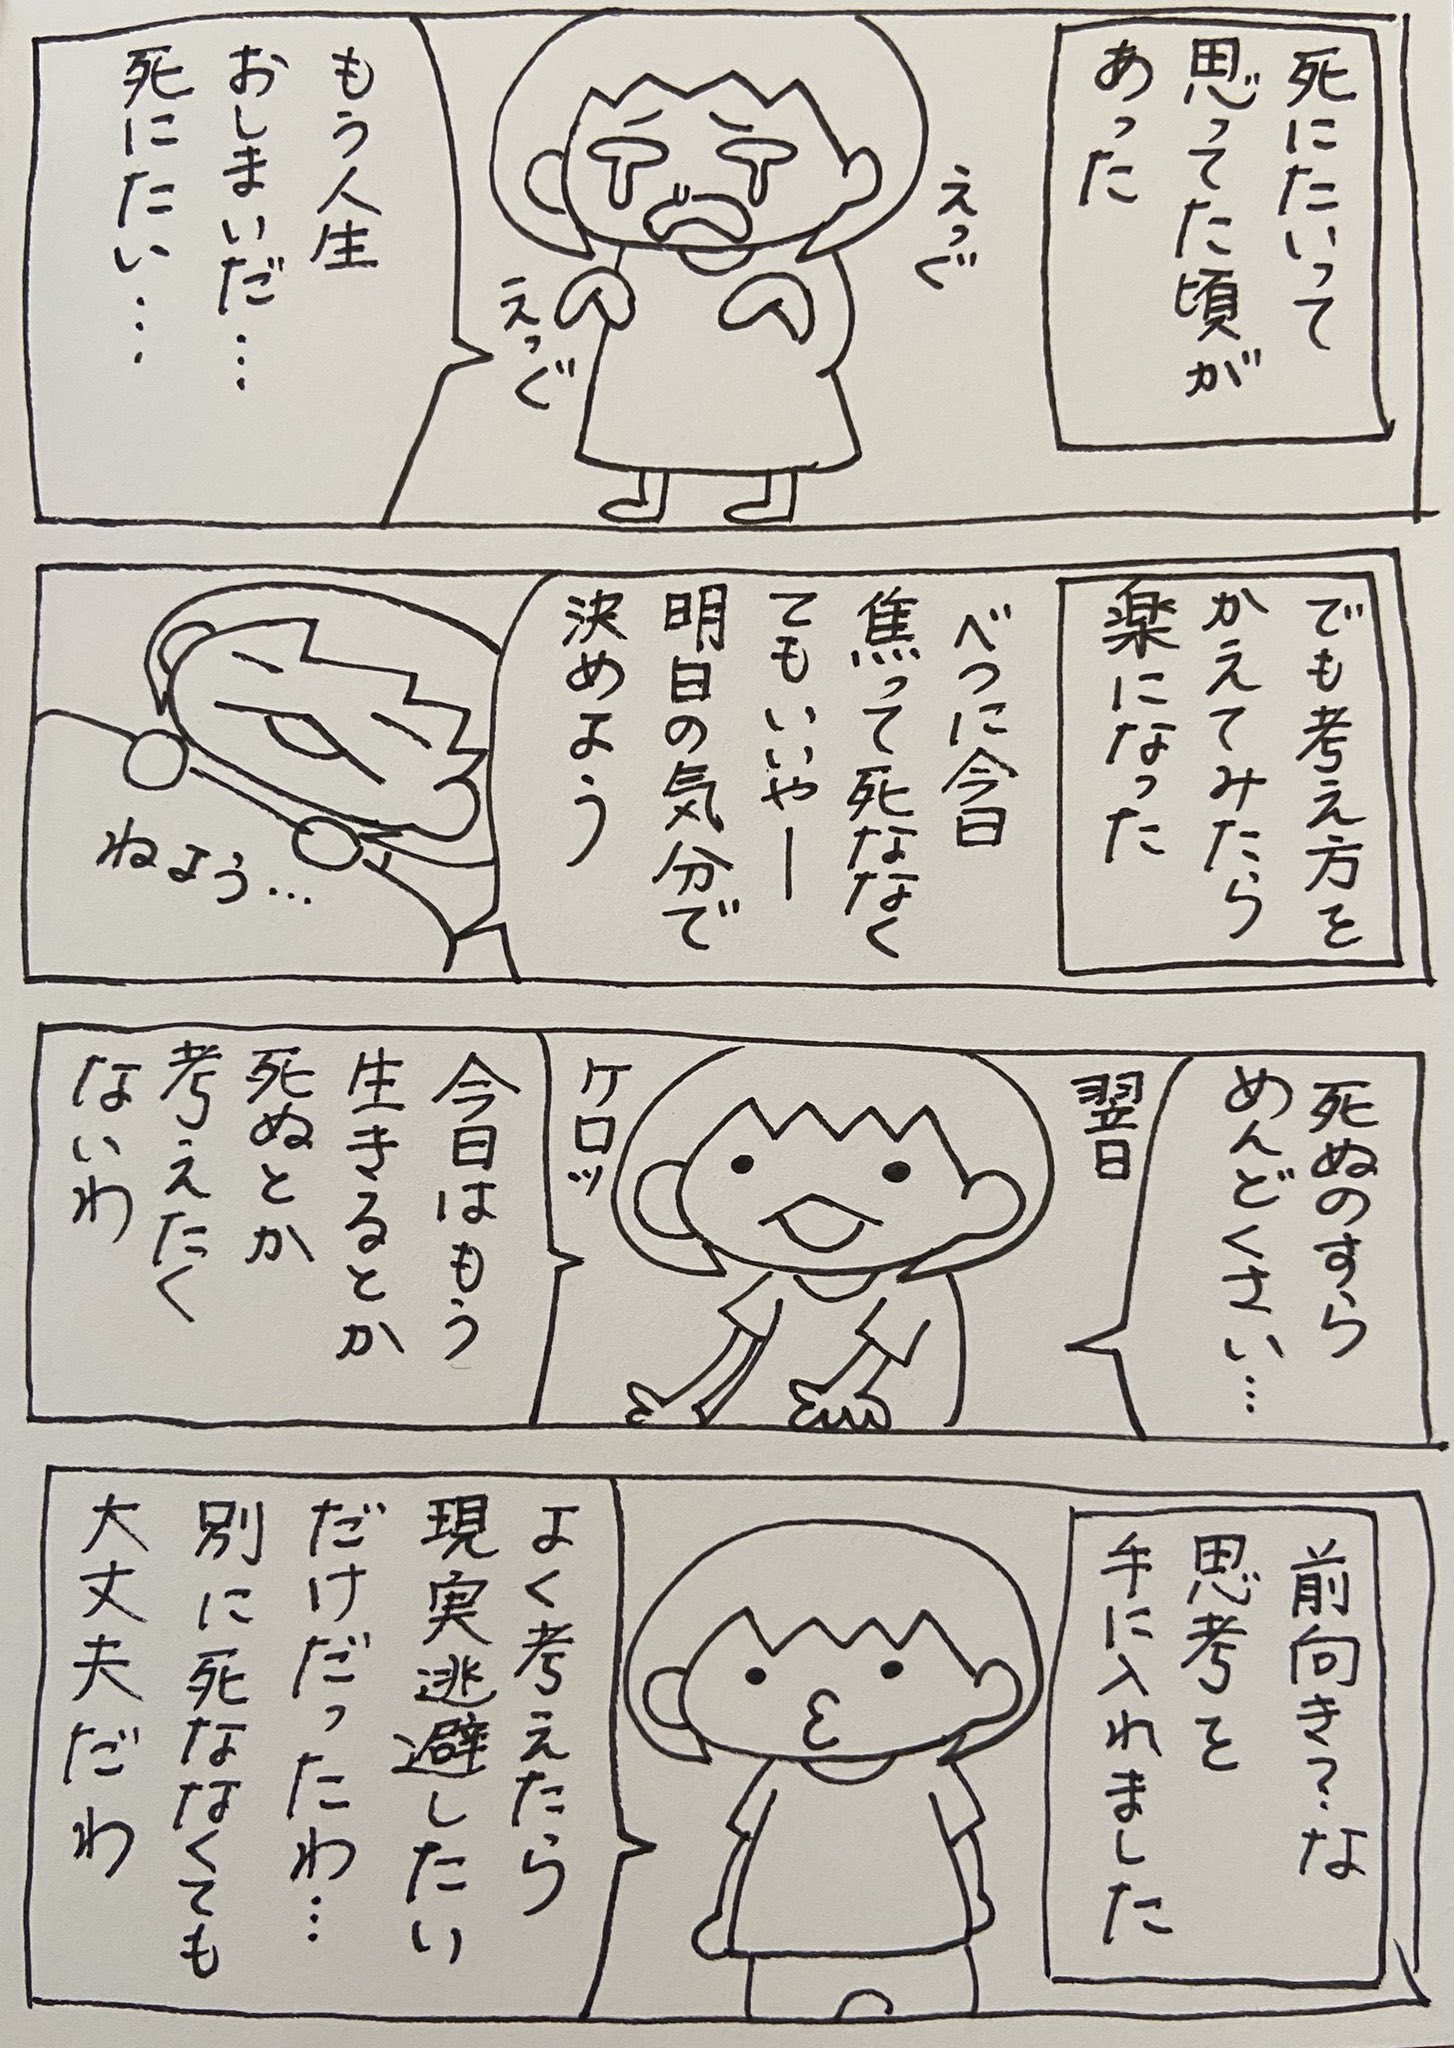 死にたいって
思ってた頃が
あった
えっぐ
えっぐ
もう人生
おしまいだ…
死にたい…
でも考え方を
かえてみたら
楽になった
べつに今日
焦って死ななく
てもいいやー
明日の気分で
決めよう
ねよう…
死ぬのすら
めんどくさい…
翌日
ケロッ
今日はもう
生きるとか
死ぬとか
考えたく
ないわ
前向き?な
思考を
手に入れました
よく考えたら
現実逃避したい
だけだったわ…
別に死ななくても
大丈夫だわ